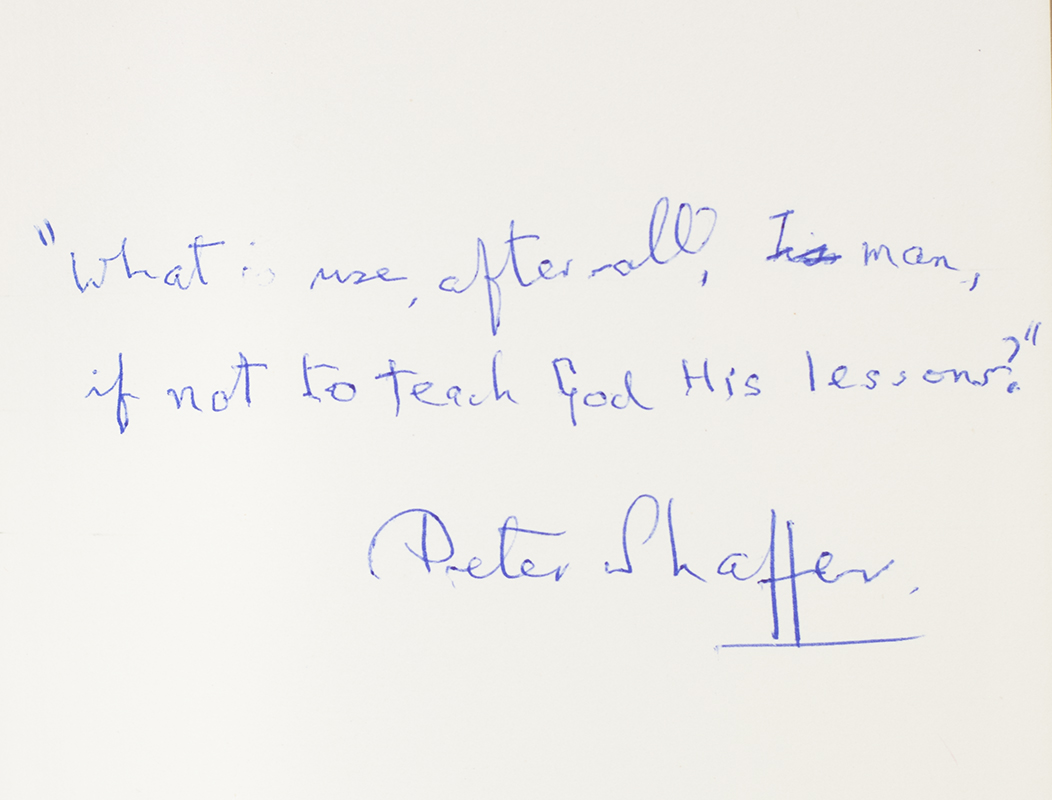 "What is use, after all, Is man,
if not to teach God His lessons?"
Peter Shaffer.